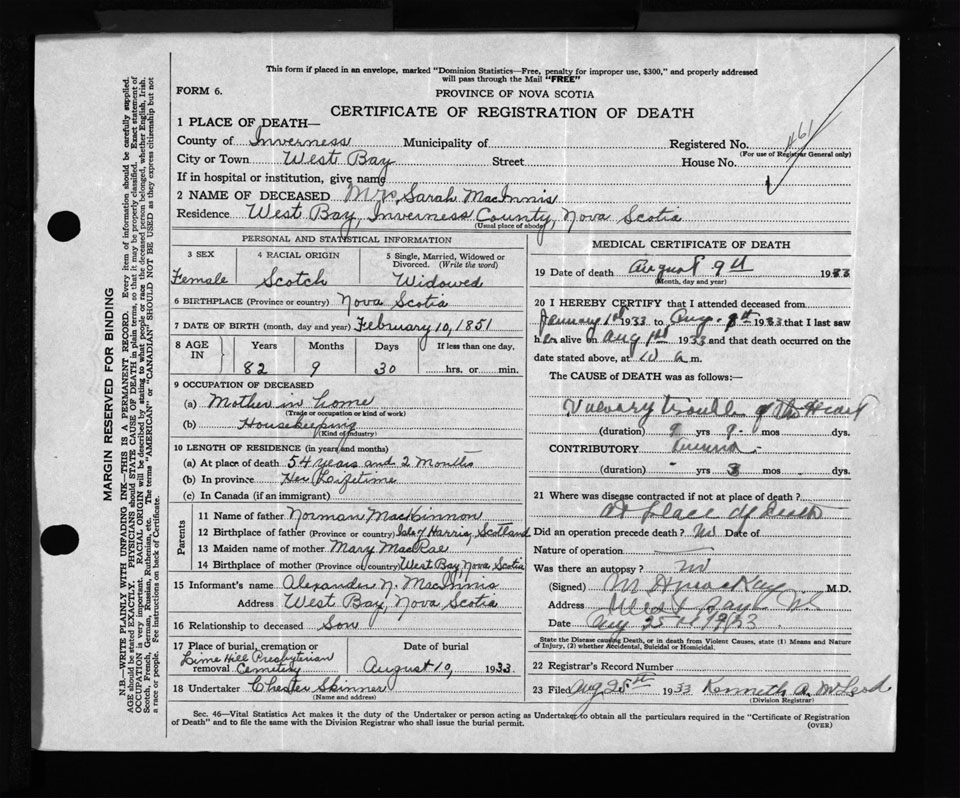 This form if placed in an envelope, marked "Dominion Statistics—Free, penalty for improper use, $300," and properly addressed
will pass through the Mail "FREE"
FORM 6.
PROVINCE OF NOVA SCOTIA
CERTIFICATE OF REGISTRATION OF DEATH
1 PLACE OF DEATH—
County of Inverness Municipality of Registered No. 461
(For use of Registrar General only)
City or Town West Bay Street House No.
If in hospital or institution, give name
2 NAME OF DECEASED Mrs. Sarah MacInnis
Residence West Bay, Inverness County, Nova Scotia
(Usual place of abode)
PERSONAL AND STATISTICAL INFORMATION
3 SEX 4 RACIAL ORIGIN 5 Single, Married, Widowed or
Divorced. (Write the word)
Female Scotch Widowed
6 BIRTHPLACE (Province or country) Nova Scotia
7 DATE OF BIRTH (month, day and year) February 10, 1851
8 AGE IN Years Months Days If less than one day.
82 9 30 hrs. or min.
9 OCCUPATION OF DECEASED
(a) Mother in home
(Trade or occupation or kind of work)
(b) Housekeeping
(Kind of industry)
10 LENGTH OF RESIDENCE (in years and months)
(a) At place of death 54 years and 2 months
(b) In province Her Lifetime
(c) In Canada (if an immigrant)
Parents
11 Name of father Norman MacKinnon
12 Birthplace of father (Province or country) Isle of Harris, Scotland
13 Maiden name of mother Mary MacRae
14 Birthplace of mother (Province or country) West Bay, Nova Scotia
15 Informant's name Alexander N. MacInnis
Address West Bay, Nova Scotia
16 Relationship to deceased Son
17 Place of burial, cremation or removal Date of burial
Lime Hill Presbyterian
Cemetery August 10, 1933
18 Undertaker Chester Skinner
(Name and address)
MEDICAL CERTIFICATE OF DEATH
19 Date of death August 9th 1933
(Month, day and year)
20 I HEREBY CERTIFY that I attended deceased from
January 1st 1933 to Aug. 9th 1933 that I last saw
her alive on Aug 1st 1933 and that death occurred on the
date stated above, at 10 a m.
The CAUSE of DEATH was as follows:—
trouble of the Heart
(duration) 9 yrs 9 mos dys.
CONTRIBUTORY
(duration) " yrs 3 mos dys.
21 Where was disease contracted if not at place of death?
at place of death
Did an operation precede death? No Date of
Nature of operation
Was there an autopsy? No
(Signed) M.D.
Address West Bay
Date Aug 25
State the Disease causing Death, or in death from Violent Causes, state (1) Means and Nature
of Injury, (2) whether Accidental, Suicidal or Homicidal.
22 Registrar's Record Number
23 Filed Aug 25th 1933 Kenneth A. McLeod
(Division Registrar)
Sec. 46—Vital Statistics Act makes it the duty of the Undertaker or person acting as Undertaker to obtain all the particulars required in the "Certificate of Registration
of Death" and to file the same with the Division Registrar who shall issue the burial permit. (OVER)
MARGIN RESERVED FOR BINDING
N.B.—WRITE PLAINLY WITH UNFADING INK—THIS IS A PERMANENT RECORD. Every item of information should be carefully supplied.
AGE should be stated EXACTLY. PHYSICIANS should STATE CAUSE OF DEATH in plain terms, so that it may be properly classified. Exact statement of
OCCUPATION is very important. RACIAL ORIGIN will be described by stating to what people or race the deceased person belonged, whether English, Irish,
Scotch, French, German, Russian, Ruthenian, etc. The terms "AMERICAN" or "CANADIAN" SHOULD NOT BE USED as they express citizenship but not
a race or people. See instructions on back of Certificate.